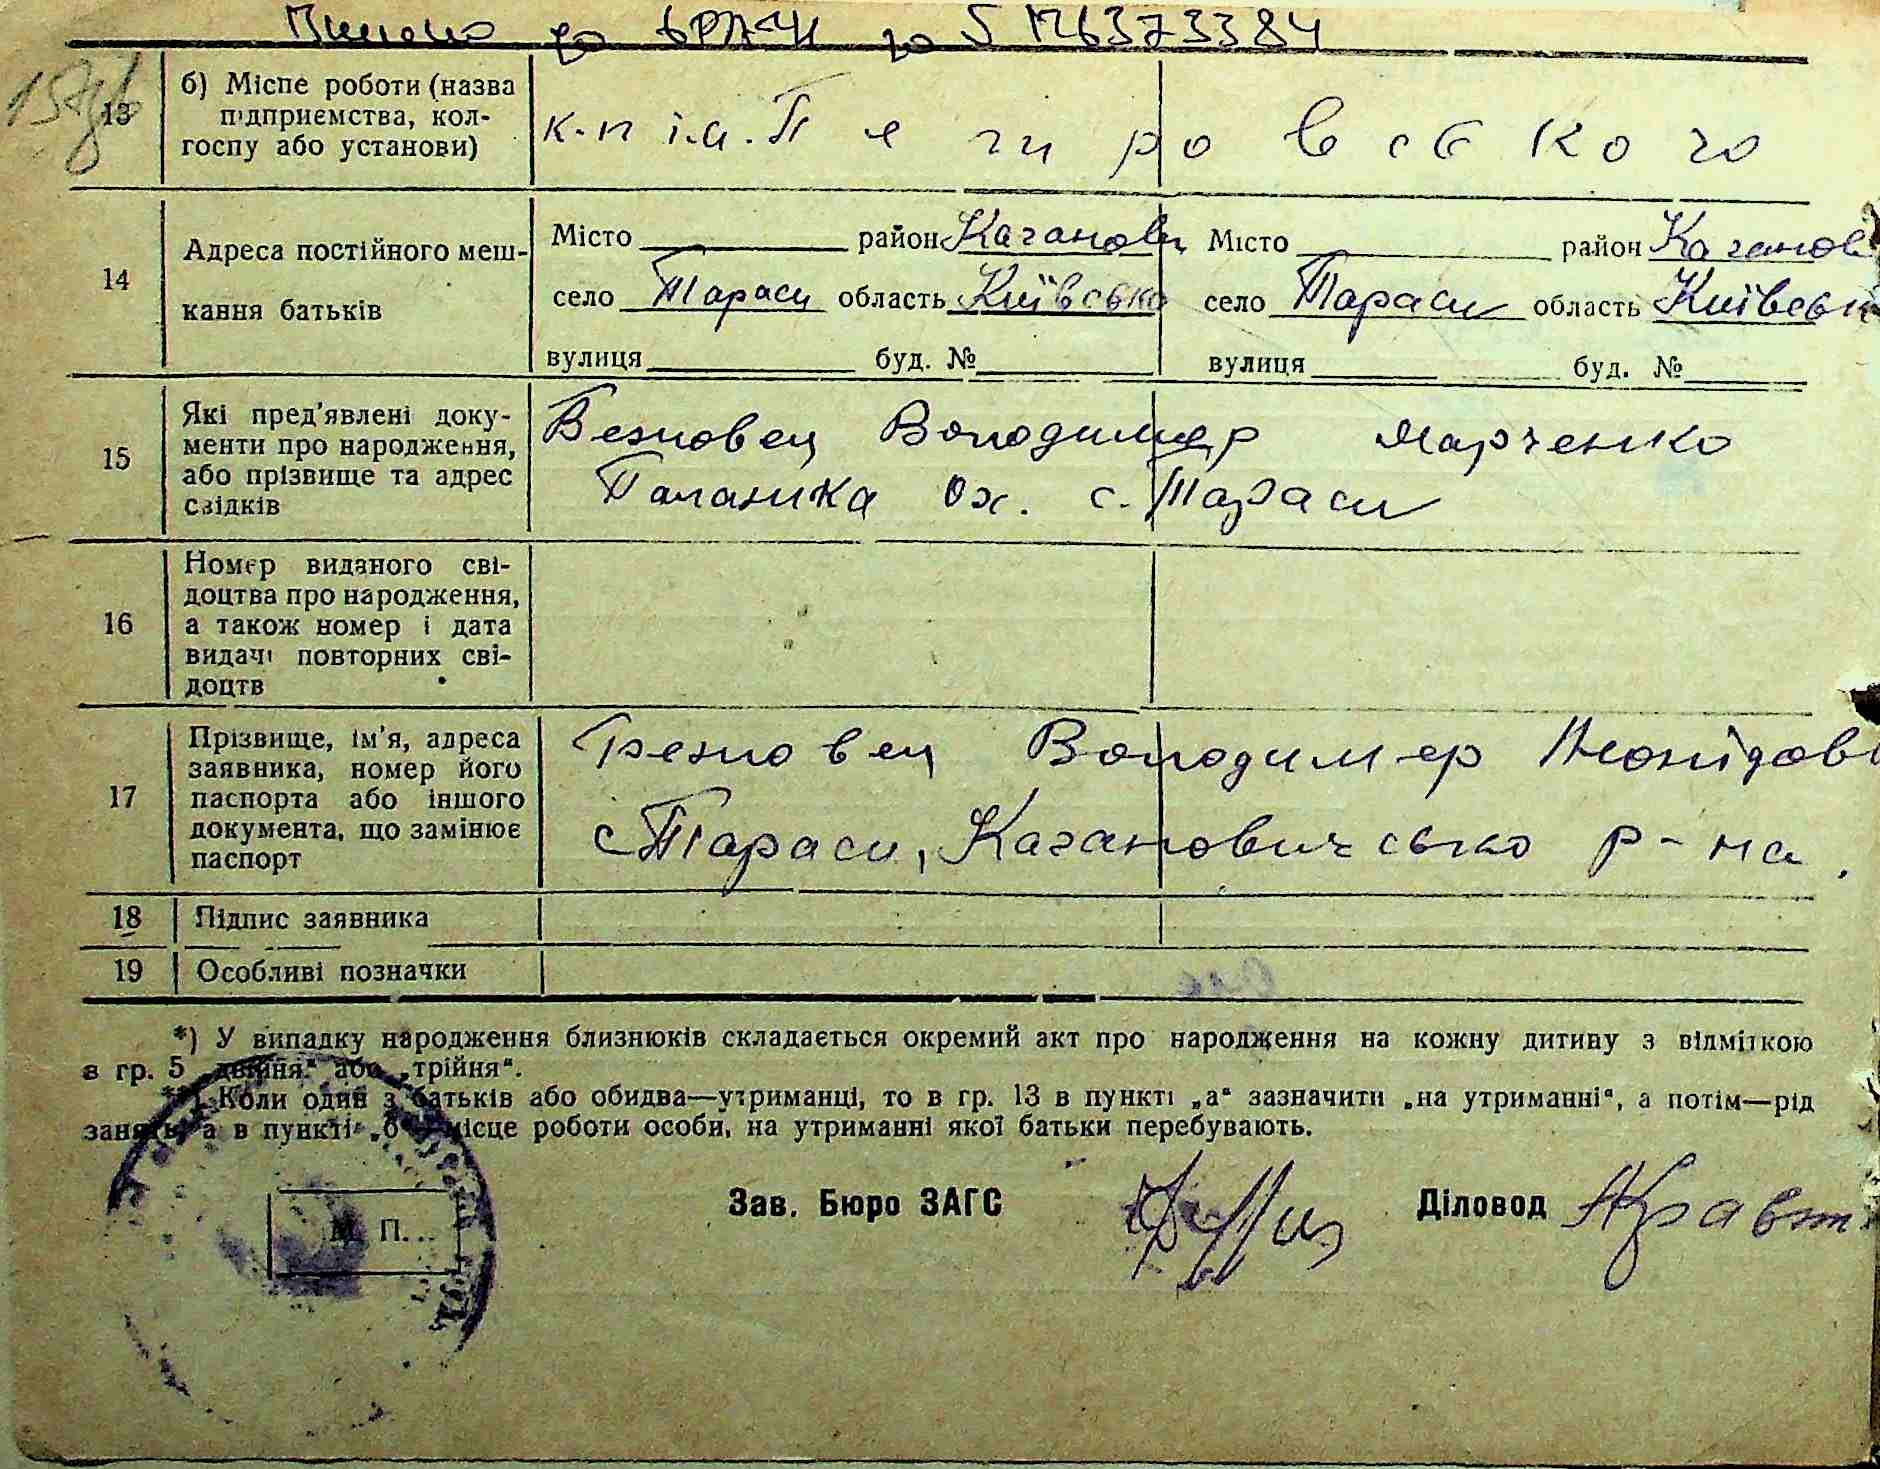 до за 5 176373384
13
б) Місце роботи (назва
підприємства, кол-
госпу або установи)
к-п ім. Петровського
14
Адреса постійного меш-
кання батьків
Місто район Каганови Місто район Каганов
село Тараси область Київсько село Тараси область Київськ
вулиця буд. № вулиця буд. №
15
Які пред'явлені доку-
менти про народження,
або прізвище та адрес
свідків
Володимер Марченко
Палашка с. Тараси
16
Номер виданого сві-
доцтва про народження,
а також номер і дата
видачі повторних сві-
доцтв
17
Прізвище, ім'я, адреса
заявника, номер його
паспорта або іншого
документа, що замінює
паспорт
Володимер
с Тараси, Кагановичсько р-на.
18 Підпис заявника
19 Особливі позначки
*) У випадку народження близнюків складається окремий акт про народження на кожну дитину з відміткою
в гр. 5 „двійня" або „трійня".
**) Коли один з батьків або обидва—утриманці, то в гр. 13 в пункті „а" зазначити „на утриманні", а потім—рід
занять, а в пункті „б" місце роботи особи, на утриманні якої батьки перебувають.
М. П.
Зав. Бюро ЗАГС Діловод Кравт